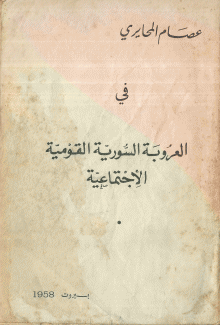 عصام المحايري
في
العروبة السورية القومية
الإجتماعية
بيروت 1958